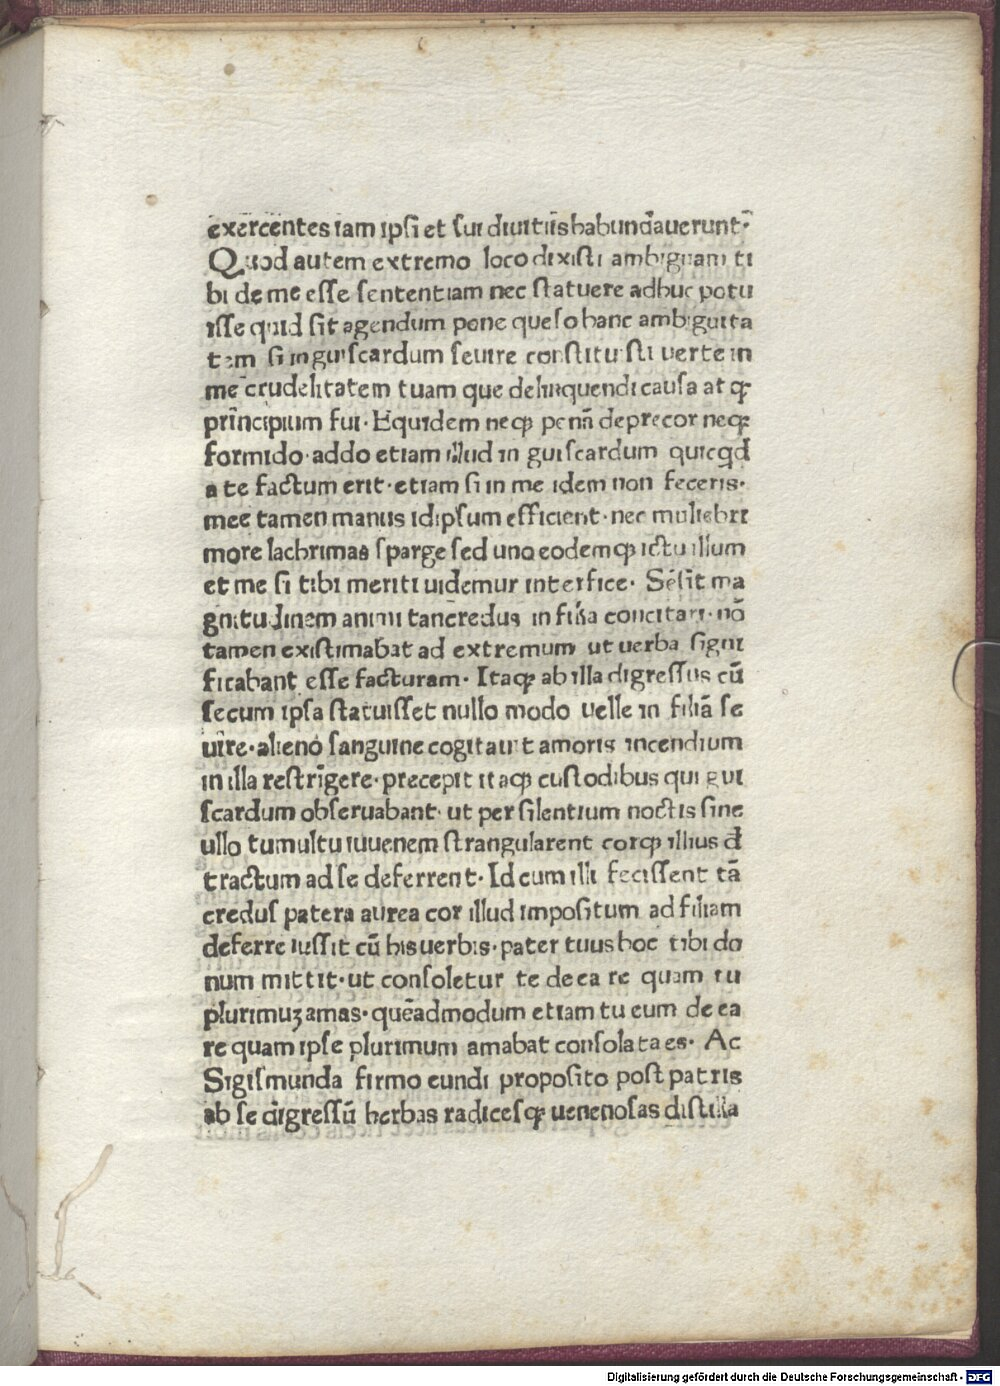 exercentes iam ipsi et sui diuitiis habundauerunt·
Quod autem extremo loco dixisti ambiguam ti
bi de me esse sententiam nec statuere adhuc potu
isse quid sit agendum pone queso hanc ambiguita
tem si in guiscardum seuire constituisti uerte in
me crudelitatem tuam que delinquendi causa at qꝫ
principium fui· Equidem neqꝫ penā deprecor neqꝫ
formido· addo etiam illud in guiscardum quicqd
a te factum erit· etiam si in me idem non feceris·
mee tamen manus idipsum efficient· nec muliebri
more lachrimas sparge sed uno eodemqꝫ ictu illum
et me si tibi meriti uidemur interfice· Sēsit ma
gnitudinem animi tancredus in filia concitari· nō
tamen existimabat ad extremum ut uerba signi
ficabant esse facturam· Itaqꝫ ab illa digressus cū
secum ipsa statuisset nullo modo uelle in filiā se
uire· alieno sanguine cogitauit amoris incendium
in illa restrīgere· precepit itaqꝫ custodibus qui gui
scardum obseruabant· ut per silentium noctis sine
ullo tumultu iuuenem strangularent corqꝫ illius đ
tractum ad se deferrent· Id cum illi fecissent tā
credus patera aurea cor illud impositum ad filiam
deferre iussit cū his uerbis· pater tuus hoc tibi do
num mittit· ut consoletur te de ea re quam tu
plurimuꝫ amas· quēadmodum etiam tu eum de ea
re quam ipse plurimum amabat consolata es· Ac
Sigismunda firmo eundi proposito post patris
ab se digressū herbas radicesqꝫ uenenosas distilla
Digitalisierung gefördert durch die Deutsche Forschungsgemeinschaft - DFG